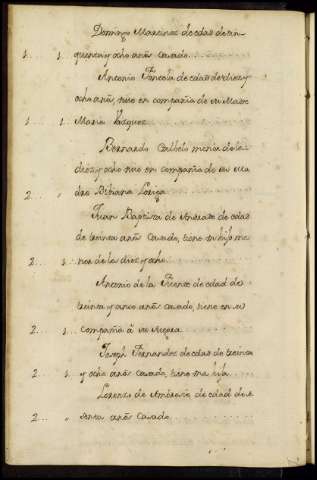 Domingo Martinez de edad de cin-
1.... 1.. quenta y ocho anōs casado.
Antonio de edad de diez y
ocho anōs, vive en compañia de su Madre
1... 1. Maria Vazquez
Bernardo Calbelo menor de la
diez y ocho vive en compañia de su ma
2... „ dre Bibiana
Juan Baptista de Andrade de edad
de treinta anōs Casado, tiene un hijo me
2.. 1.. nor de la diez y ocho
Antonio de la Fuente de edad de
treinta y cinco anōs casado, tiene en su
2... 1.. Compañia â su Suegra
Joseph Fernandez de edad de treinta
2... 1... y ocho anōs Casado, tiene una hija
Lorenzo de Ambrosio de edad de se
2.... „ senta anōs Casado